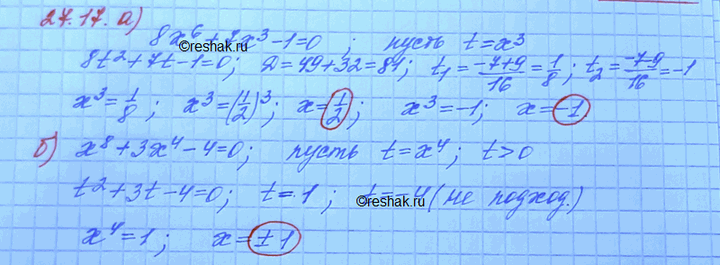 27.17. а)
8x⁶+7x³-1=0 ; пусть t=x³
©reshak.ru
8t²+7t-1=0; D=49+32=84; t₁=(-7+9)/16=1/8; t₂=(-7-9)/16=-1
x³=1/8; x³=(1/2)³; x=1/2; x³=-1; x=-1
б) x⁸+3x⁴-4=0; пусть t=x⁴; t>0
t²+3t-4=0; t=1; t=-4 (не подход.)
©reshak.ru
x⁴=1; x=±1